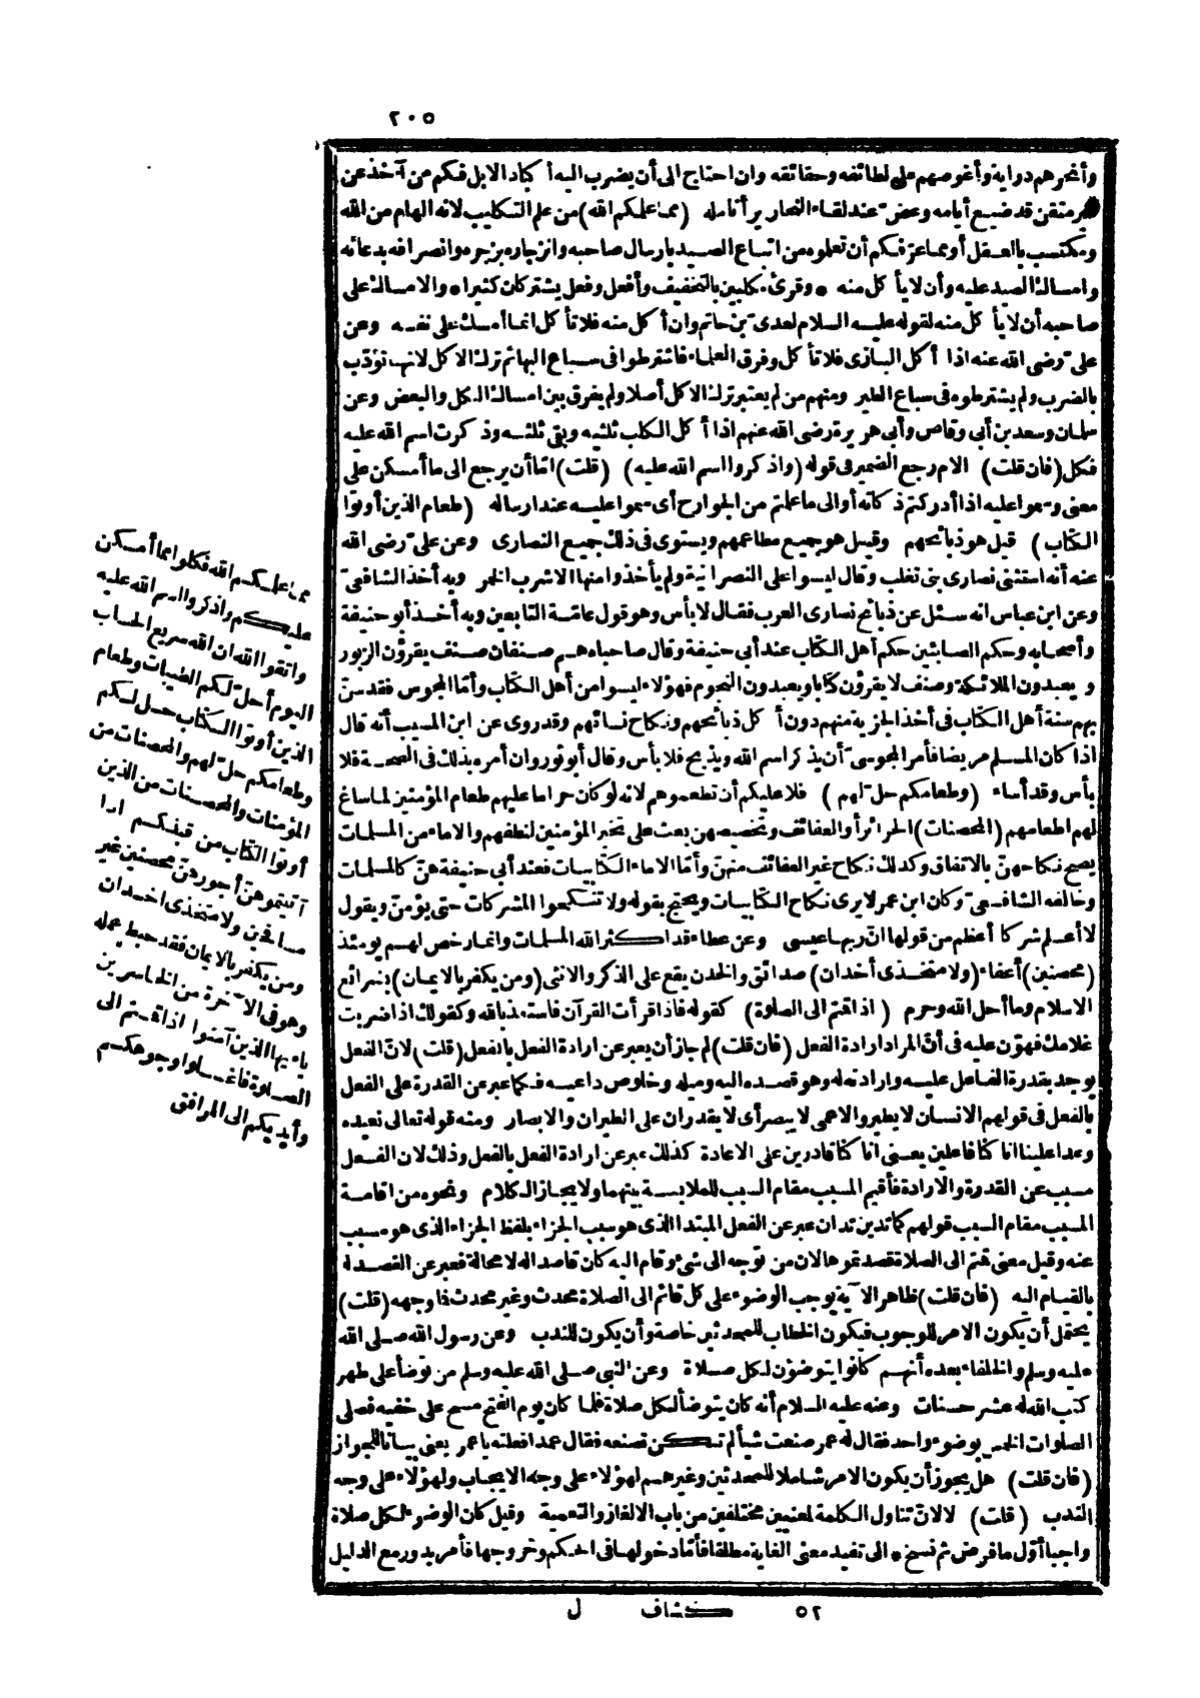 ٢٠٥
وأنحرهم دراية وأغوصهم على لطائفه وحقائقه وان احتاج الى أن يضرب اليه أكباد الابل فكم من آخذ عن
غير متقن قد ضيع أيامه وعض عند لقاء النحارير أنامله (مما علمكم الله) من علم التكليب لانه الهام من الله
ومكتسب بالعقل أو مما عرفكم أن تعلموه من اتباع الصيد بارسال صاحبه وانزجاره بزجره وانصرافه بدعائه
وامساك الصيد عليه وأن لا يأكل منه * وقرئ مكلبين بالتخفيف وأفعل وفعل يشتركان كثيرا * والامساك على
صاحبه أن لا يأكل منه لقوله عليه السلام لعدىّ بن حاتم وان أكل منه فلا تأكل انما أمسك على نفسه وعن
علىّ رضى الله عنه اذا أكل البازى فلا تأكل وفرق العلماء فاشترطوا فى سباع البهائم ترك الاكل لانها تؤدّب
بالضرب ولم يشترطوه فى سباع الطير ومنهم من لم يعتبر ترك الاكل أصلا ولم يفرق بين امساك الكل والبعض وعن
سلمان وسعد بن أبى وقاص وأبى هريرة رضى الله عنهم اذا أكل الكلب ثلثيه وبقى ثلثه وذكرت اسم الله عليه
فكل (فان قلت) الام رجع الضمير فى قوله (واذكروا اسم الله عليه) (قلت) امّا أن يرجع الى ما أمسكن على
معنى وسموا عليه اذا أدركتم ذكاته أو الى ما علمتم من الجوارح أى سموا عليه عند ارساله (طعام الذين أوتوا
الكتاب) قيل هو ذبائحهم وقيل هو جميع مطاعمهم ويستوى فى ذلك جميع النصارى وعن علىّ رضى الله
عنه أنه استثنى نصارى بنى تغلب وقال ليسوا على النصرانية ولم يأخذوا منها الا شرب الخمر وبه أخذ الشافعىّ
وعن ابن عباس انه سئل عن ذبائح نصارى العرب فقال لا بأس وهو قول عامّة التابعين وبه أخذ أبو حنيفة
وأصحابه وحكم الصابئين حكم أهل الكتاب عند أبى حنيفة وقال صاحباه هم صنفان صنف يقرؤن الزبور
ويعبدون الملائكة وصنف لا يقرؤن كتابا ويعبدون النجوم فهؤلاء ليسوا من أهل الكتاب وأمّا المجوس فقد سنّ
بهم سنة أهل الكتاب فى أخذ الجزية منهم دون أكل ذبائحهم ونكاح نسائهم وقد روى عن ابن المسيب أنه قال
اذا كان المسلم مريضا فأمر المجوسىّ أن يذكر اسم الله ويذبح فلا بأس وقال أبو ثور وان أمره بذلك فى الصحة فلا
بأس وقد أساء (وطعامكم حلّ لهم) فلا عليكم أن تطعموهم لانه لو كان حراما عليهم طعام المؤمنين لما ساغ
لهم اطعامهم (المحصنات) الحرائر أو العفائف وتخصيصهن بعث على تخير المؤمنين لنطفهم والاماء من المسلمات
يصح نكاحهنّ بالاتفاق وكذلك نكاح غير العفائف منهنّ وأمّا الاماء الكتابيات فعند أبى حنيفة هنّ كالمسلمات
وخالفه الشافعىّ وكان ابن عمر لا يرى نكاح الكتابيات ويحتج بقوله ولا تنكحوا المشركات حتى يؤمنّ ويقول
لا أعلم شركا أعظم من قولها انّ ربها عيسى وعن عطاء قد أكثر الله المسلمات وانما رخص لهم يومئذ
(محصنين) أعفاء (ولا متخذى أخدان) صدائق والخدن يقع على الذكر والانثى (ومن يكفر بالايمان) بشرائع
الاسلام وما أحل الله وحرم (اذا قمتم الى الصلوة) كقوله فاذا قرأت القرآن فاستعذ بالله وكقولك اذا ضربت
غلامك فهوّن عليه فى أنّ المراد ارادة الفعل (فان قلت) لم جاز أن يعبر عن ارادة الفعل بالفعل (قلت) لانّ الفعل
يوجد بقدرة الفاعل عليه وارادته له وهو قصده اليه وميله وخلوص داعيه فكما عبر عن القدرة على الفعل
بالفعل فى قولهم الانسان لا يطير والاعمى لا يبصر أى لا يقدران على الطيران والابصار ومنه قوله تعالى نعيده
وعدا علينا انا كنا فاعلين يعنى انا كنا قادرين على الاعادة كذلك عبر عن ارادة الفعل بالفعل وذلك لان الفعل
مسبب عن القدرة والارادة فأقيم المسبب مقام السبب للملابسة بينهما ولايجاز الكلام ونحوه من اقامة
المسبب مقام السبب قولهم كما تدين تدان عبر عن الفعل المبتدا الذى هو سبب الجزاء بلفظ الجزاء الذى هو مسبب
عنه وقيل معنى قمتم الى الصلاة قصدتموها لان من توجه الى شئ وقام اليه كان قاصدا له لا محالة فعبر عن القصد له
بالقيام اليه (فان قلت) ظاهر الآية يوجب الوضوء على كل قائم الى الصلاة محدث وغير محدث فما وجهه (قلت)
يحتمل أن يكون الامر للوجوب فيكون الخطاب للمحدثين خاصة وأن يكون للندب وعن رسول الله صلى الله
عليه وسلم والخلفاء بعده أنهم كانوا يتوضؤن لكل صلاة وعن النبى صلى الله عليه وسلم من توضأ على طهر
كتب الله له عشر حسنات وعنه عليه السلام أنه كان يتوضأ لكل صلاة فلما كان يوم الفتح مسح على خفيه فصلى
الصلوات الخمس بوضوء واحد فقال له عمر صنعت شيأ لم تكن تصنعه فقال عمدا فعلته يا عمر يعنى بيانا للجواز
(فان قلت) هل يجوز أن يكون الامر شاملا للمحدثين وغيرهم لهؤلاء على وجه الايجاب ولهؤلاء على وجه
الندب (قلت) لا لانّ تناول الكلمة لمعنيين مختلفين من باب الالغاز والتعمية وقيل كان الوضوء لكل صلاة
واجبا أوّل ما فرض ثم نسخ * الى تفيد معنى الغاية مطلقا فأمّا دخولها فى الحكم وخروجها فأمر يدور مع الدليل
مما علمكم الله فكلوا مما أمسكن
عليكم واذكروا اسم الله عليه
واتقوا الله ان الله سريع الحساب
اليوم أحلّ لكم الطيبات وطعام
الذين أوتوا الكتاب حل لكم
وطعامكم حلّ لهم والمحصنات من
المؤمنات والمحصنات من الذين
أوتوا الكتاب من قبلكم اذا
آتيتموهنّ أجورهنّ محصنين غير
مسافحين ولا متخذى اخدان
ومن يكفر بالايمان فقد حبط عمله
وهو فى الآخرة من الخاسرين
ياءيها الذين آمنوا اذا قمتم الى
الصلوة فاغسلوا وجوهكم
وأيديكم الى المرافق
٥٢ كشاف ل